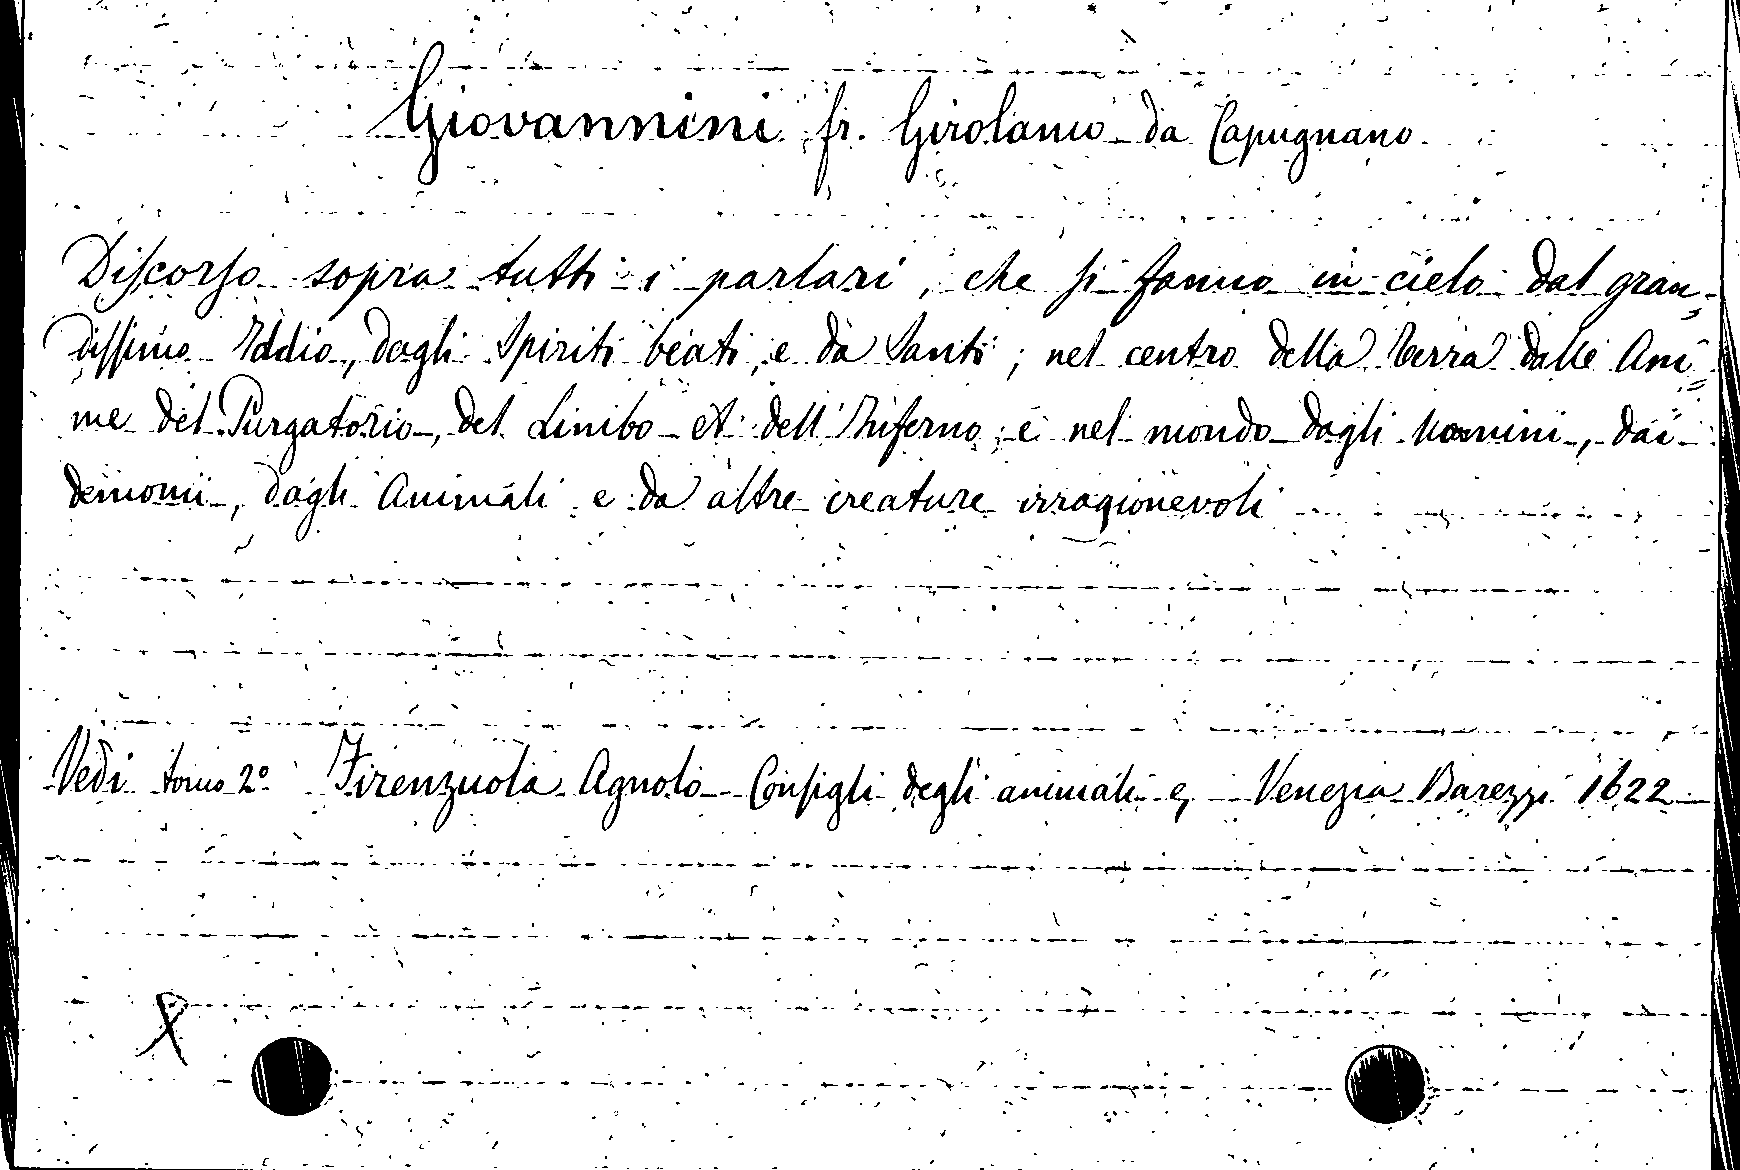 Giovannini fr. Girolamo da Capugnano
Discorso sopra tutti i parlari, che si fanno in cielo dal gran=
dissimo Iddio, dagli Spiriti beati, e da Santi; nel centro della Terra dalle Ani=
me del Purgatorio, del Limbo et dell'Inferno; e nel mondo dagli Uomini, dai
demonii, dagli Animali e da altre creature irragionevoli
Vedi tomo 2º Firenzuola Agnolo Consigli degli animali e, Venezia Barezzi 1622
X